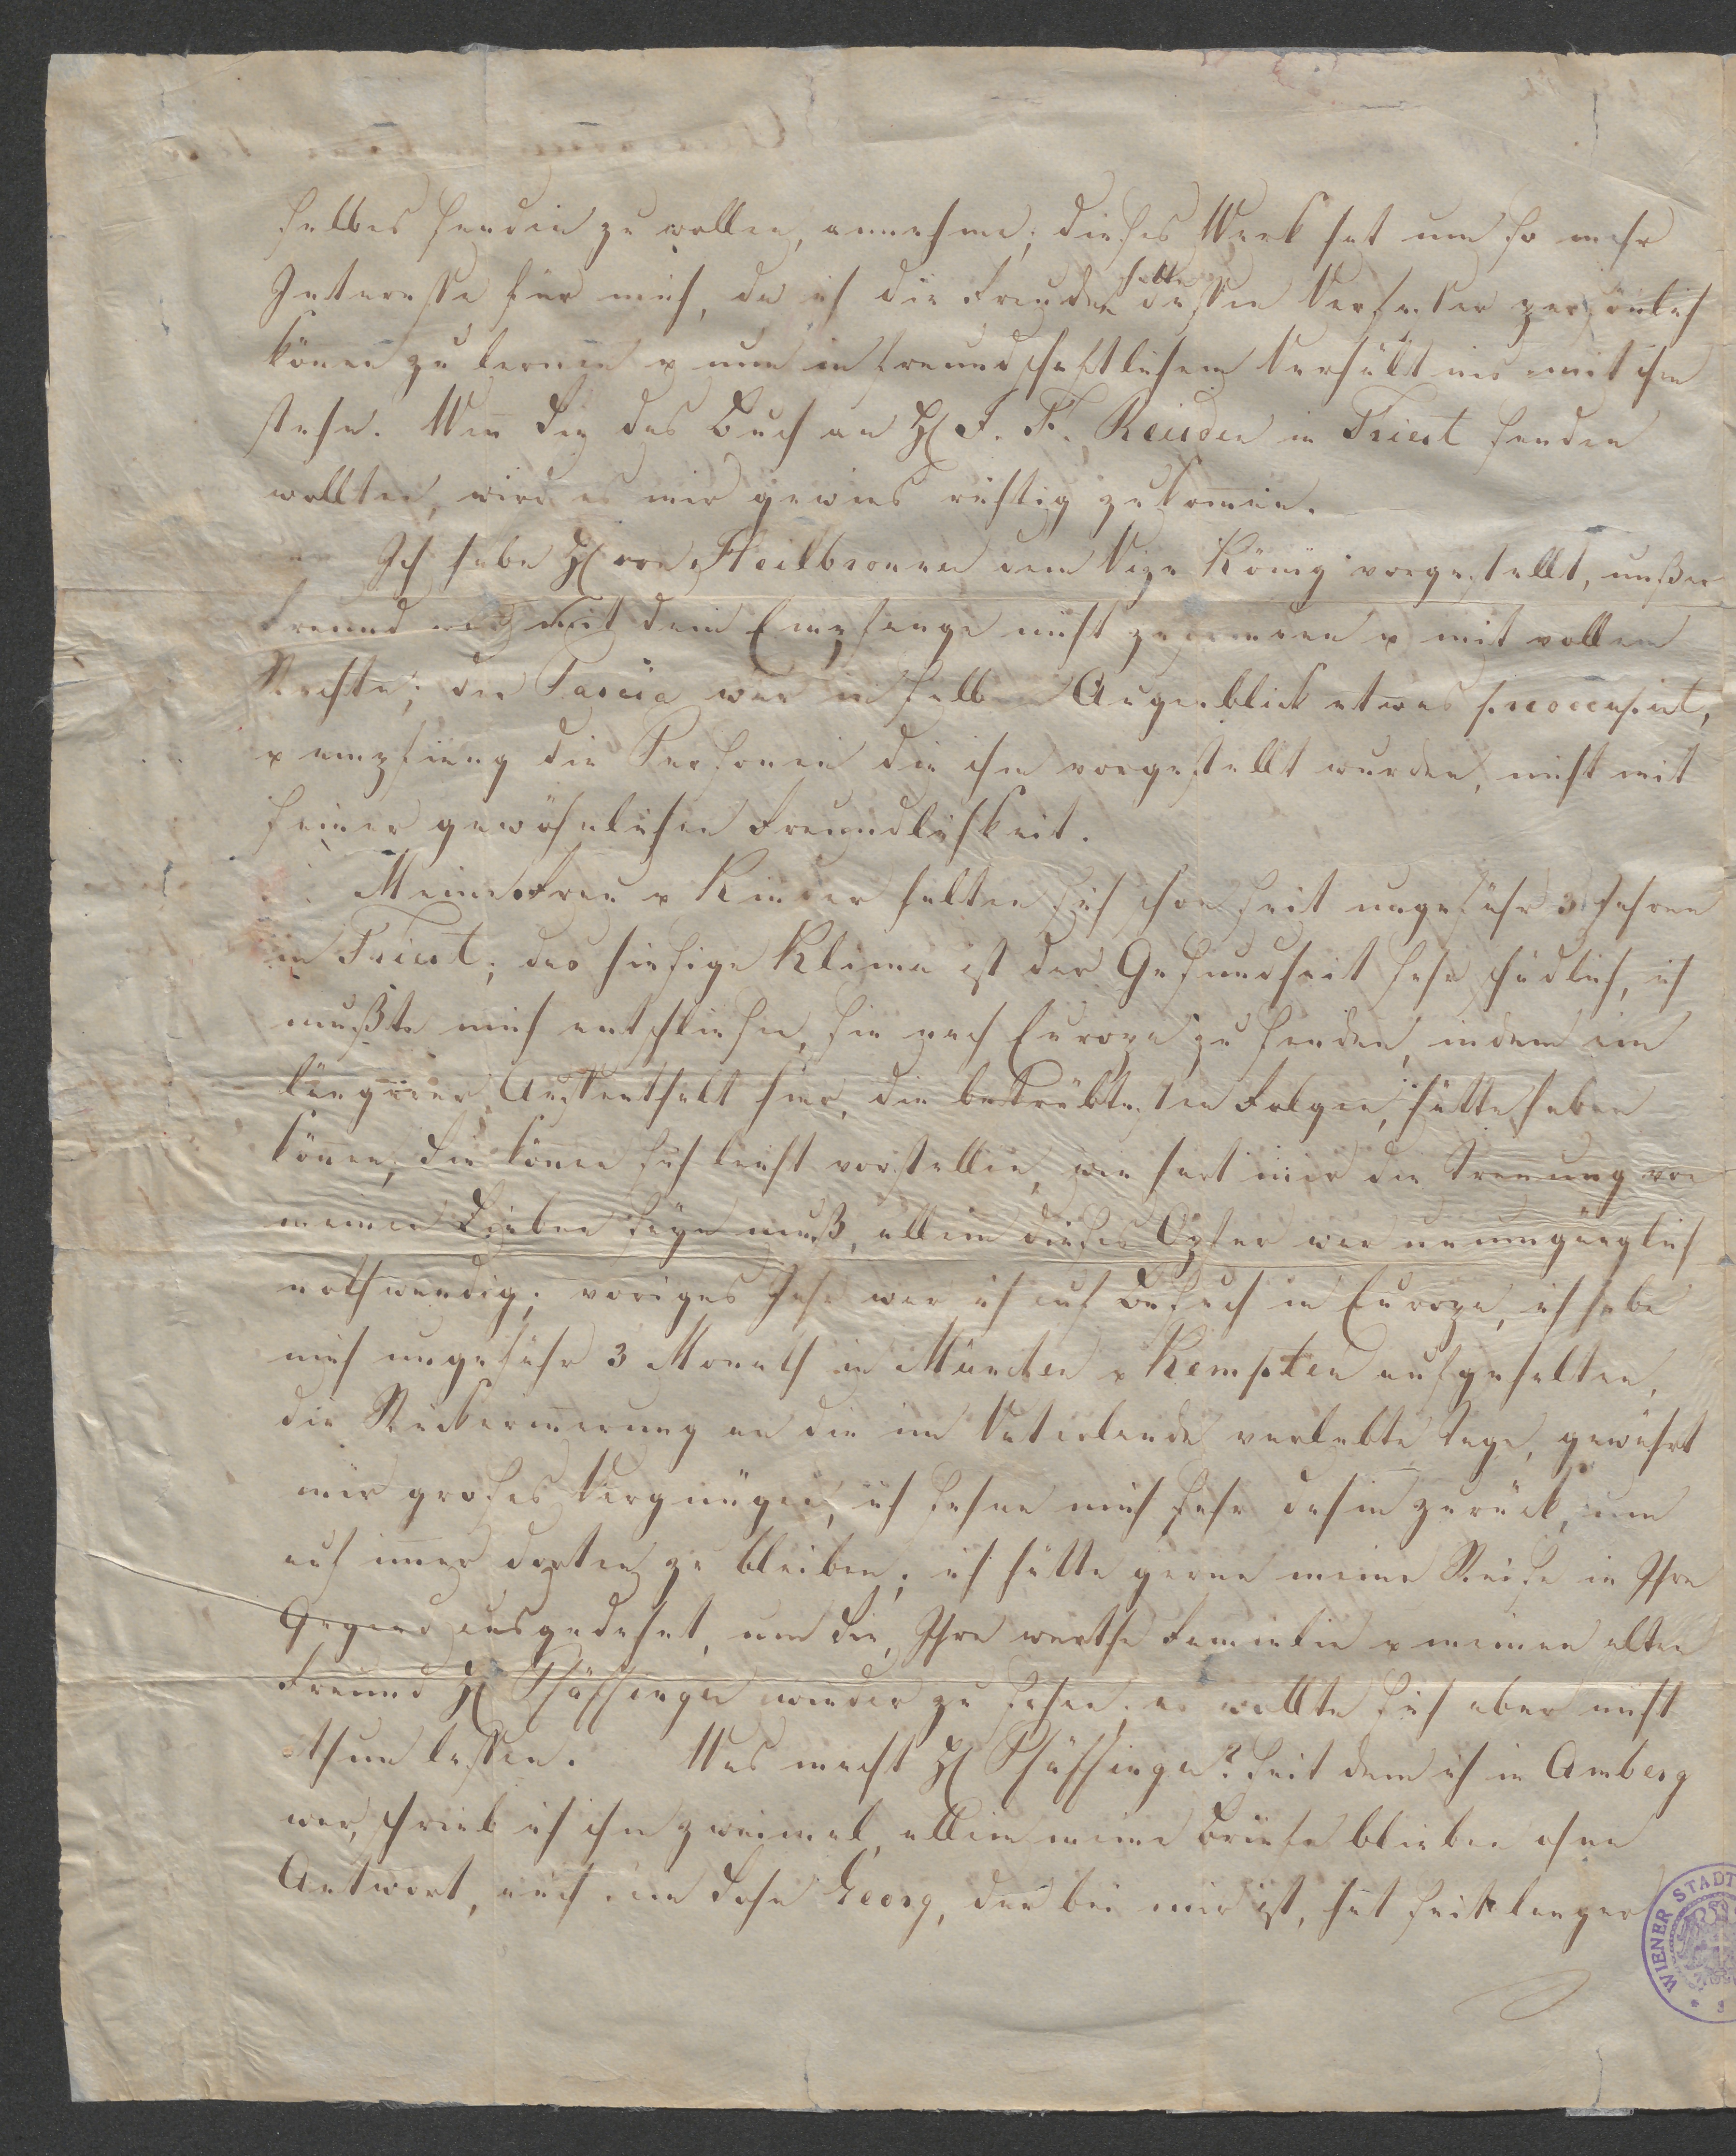 selbes senden zu wollen, annehme; dieses Werk hat um so mehr
Interesse für mich, da ich die Freude hatte dessen Verfasser persönlich
könen zu lernen & nun in freundschaftlichem Verhältnis mit ihm
stehe. Wen Sie das Buch an H. J. F. Reuder in Triest senden
wollten, wird es mir gewies richtig zukomen.
Ich habe H. von Heilbronner dem Vize König vorgestellt, unser
Freund mit dem Empfange nicht zufrieden & mit vollem
Rechte; der Pascia war im selben Augenblick etwas preoccupirt,
& empfieng die Personen die ihm vorgestellt wurden, nicht mit
seiner gewöhnlichen Freundlichkeit.
Meine Frau & Kinder halten sich schon seit ungefähr 3 Jahren
in Triest; das hiesige Klima ist der Gesundheit sehr schädlich, ich
mußte mich entschliesen, sie nach Europa zu senden, indem ein
längerer Auffenthalt hier, die betrübtesten Folgen, hätte haben
könen; Sie könen sich leicht vorstellen, wie hart mir die Trenung von
meinen Lieben seyn muß, allein dieses Opfer war unumgänglich
nothwendig; voriges Jahr war ich auf Besuch in Europa, ich habe
mich ungefähr 3 Monath in München & Kempten aufgehalten,
die Rückerinerung an die im Vaterlande verlebte Tage, gewährt
mir groses Vergnügen, ich sehne mich sehr dahin zurück, um
auf imer dorten zu bleiben; ich hätte gerne meine Reise in Ihre
Gegend ausgedehnt, um Sie, Ihre werthe Familie & meinen alten
Freund H. Schässinger wieder zu sehen, es wollte sich aber nicht
thun lassen. Was macht H. Schässinger? Seit dem ich in Amberg
war, schrieb ich ihm zweimal, allein meine Briefe blieben ohne
Antwort, auch sein Sohn Georg, der bei mir ist, hat seit langer
WIENER STADT